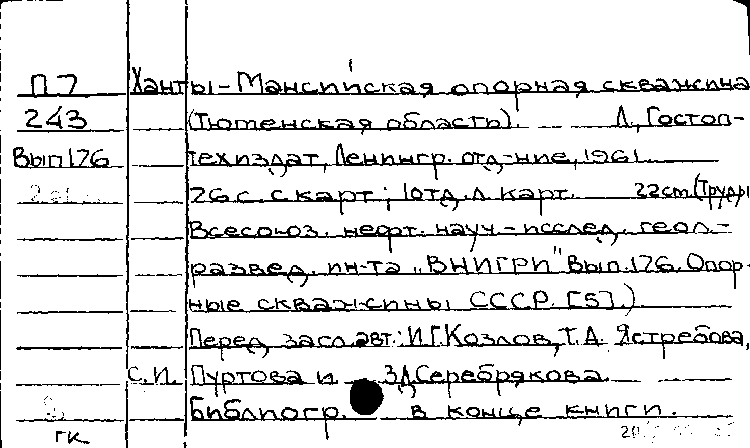 П7 Ханты-Мансийская опорная скважина
243 (Тюменская область). Л., Гостоп-
Вып.176 техиздат, Ленингр. отд-ние, 1961
26 с. с карт.; 1 отд. л. карт. 22 см. (Труды
Всесоюз. нефт. науч-исслед. геол.-
развед. ин-та "ВНИГРИ" Вып. 176. Опор-
ные скважины СССР. [5].)
Перед загл. авт.: И.Г. Козлов, Т.А. Ястребова,
С.И. Пуртова и З.Л. Серебрякова.
Библиогр. в конце книги.
ГК